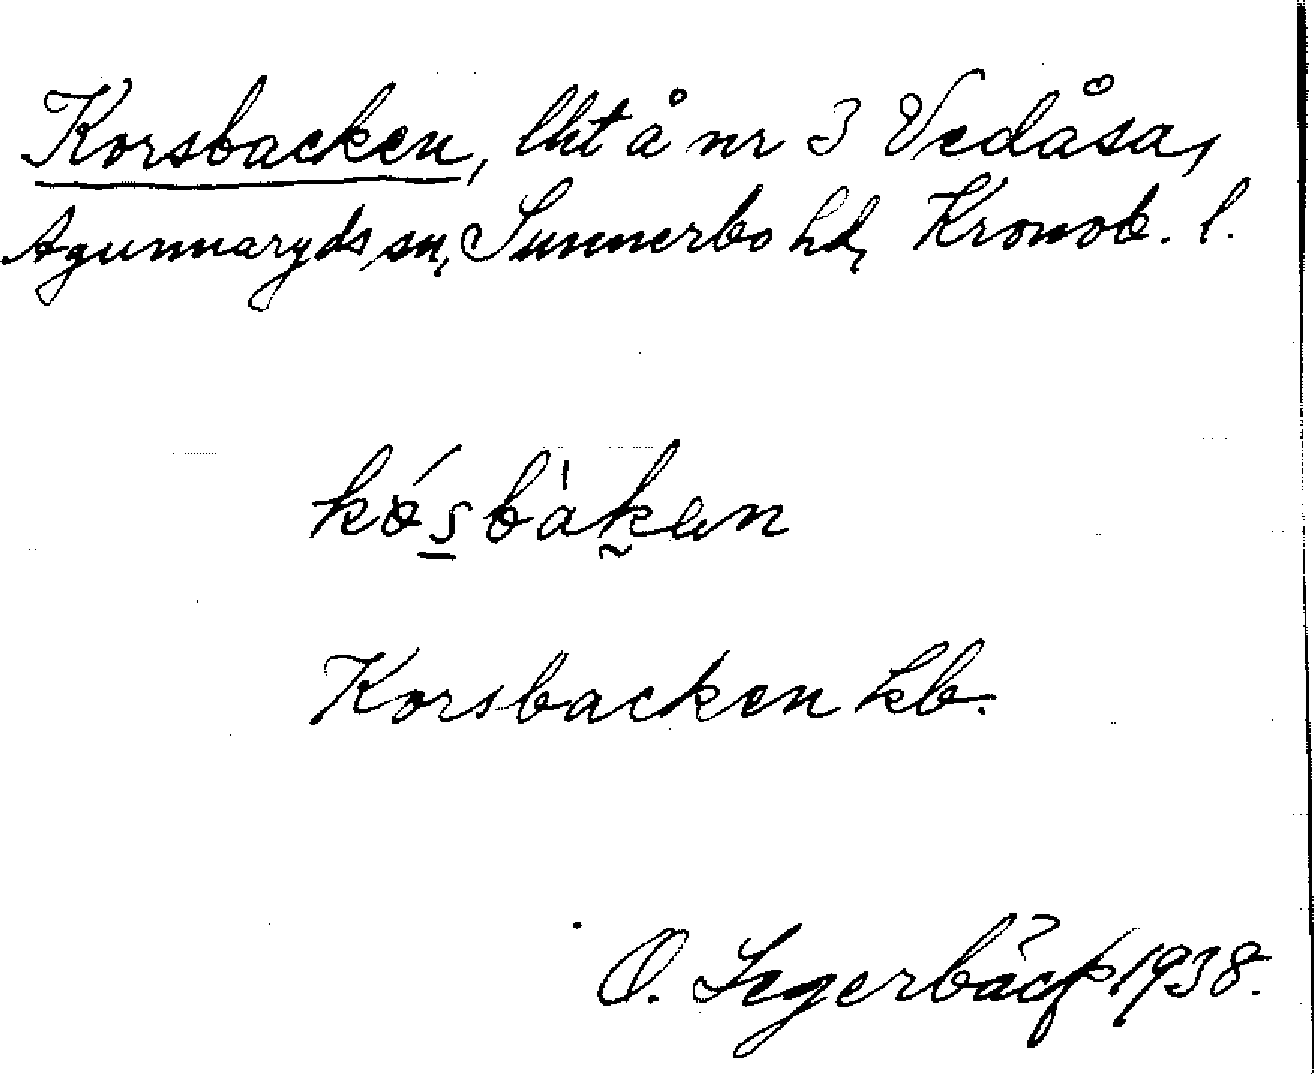 Korsbacken, lht å nr 3 Vedåsa,
Agunnaryds sn, Sunnerbo hd, Kronob. l.
Korsbacken kb.
O. Segerbäck 1938.